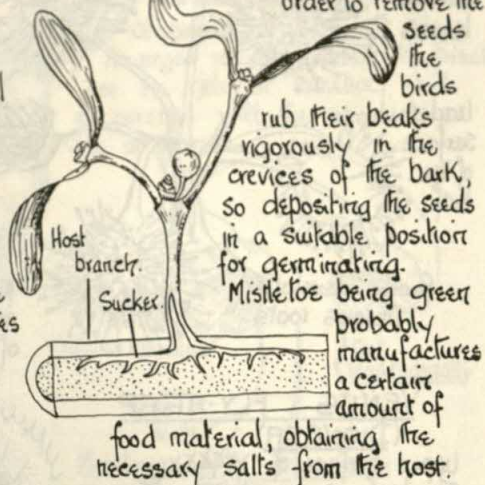 order to remove the
seeds
the
birds
rub their beaks
rigorously in the
crevices of the bark,
so depositing the seeds
in a suitable position
for germinating.
Mistletoe being green
probably
manufactures
a certain
amount of
food material, obtaining the
necessary salts from the host.
Host
branch.
Sucker.